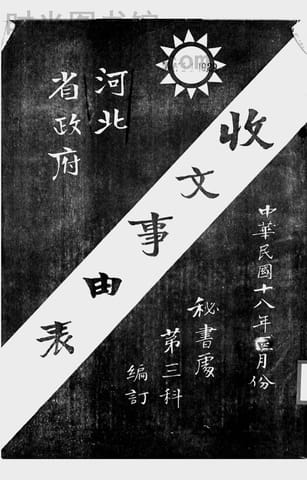 河北
省政府
收文事由表
中華民國十八年三月份
秘書處
第三科
編訂